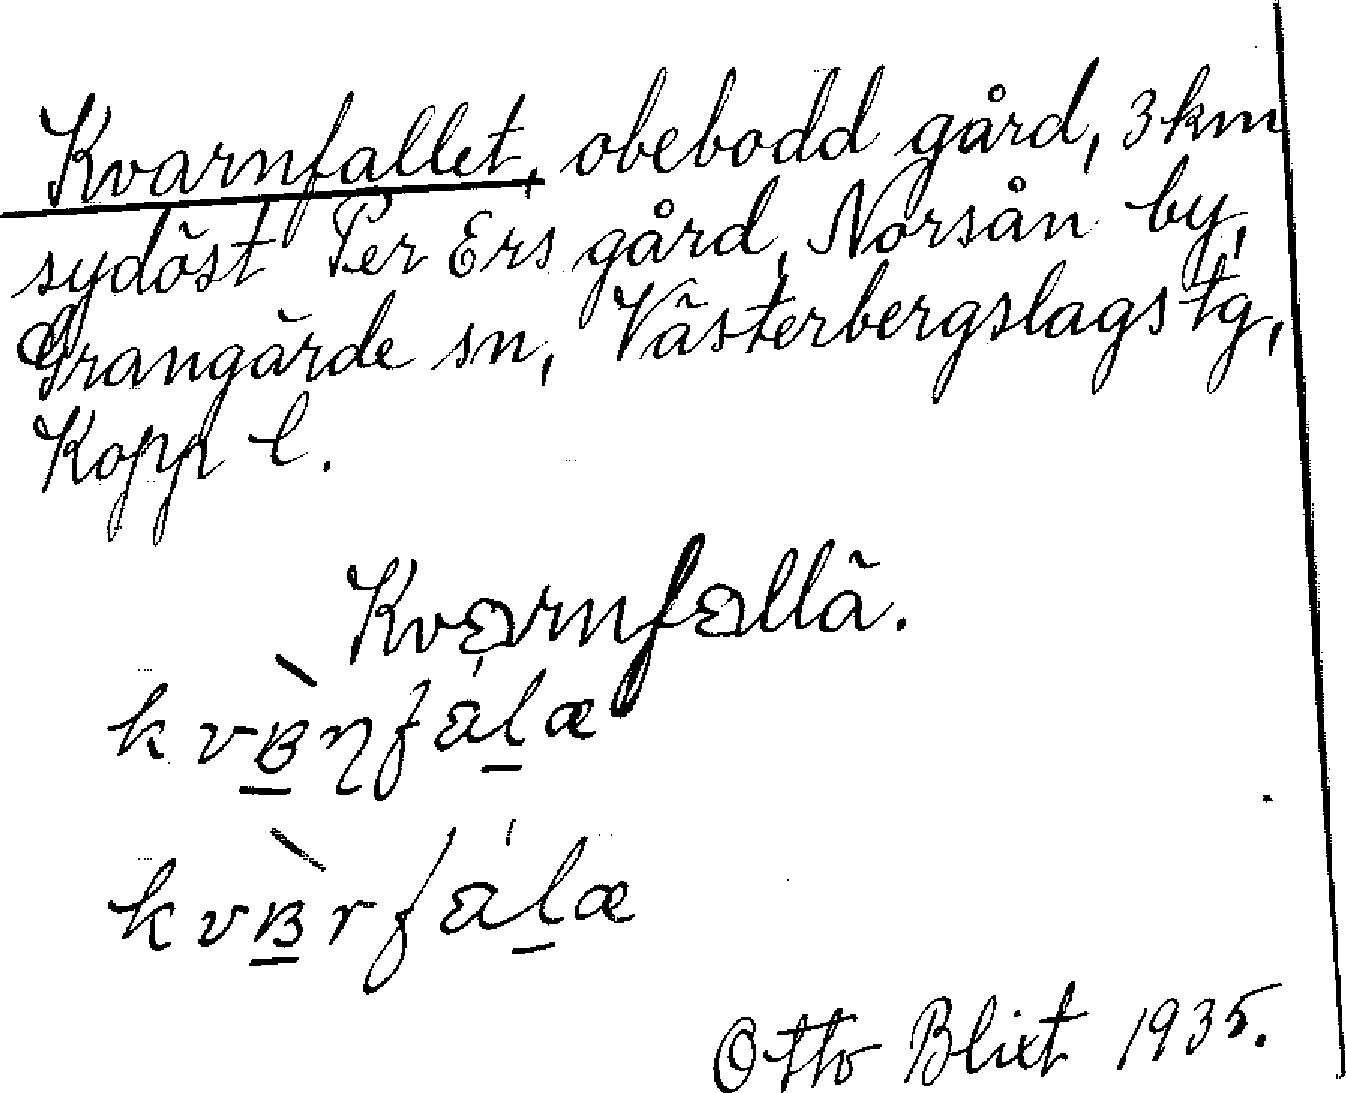 Kvarnfallet, obebodd gård, 3 km
sydöst Per Ers gård, Norsån by,
Grangärde sn, Västerbergslags tg,
Kopp l.
Kvarnfallä.
Otto Blixt 1935.